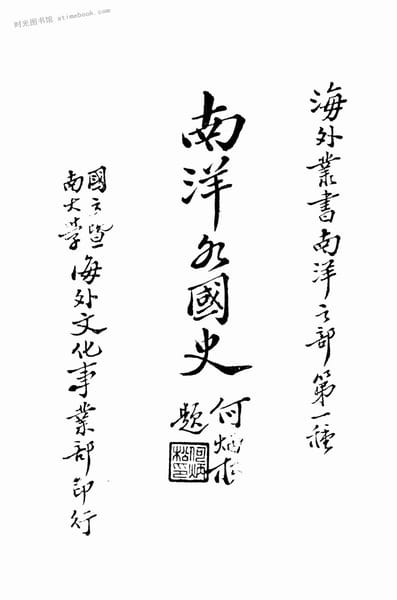 时光图书馆 atimebook.com
海外叢書南洋之部第一種
南洋各國史
何炳松
題
何炳
松印
國立暨
南大學
海外文化事業部印行